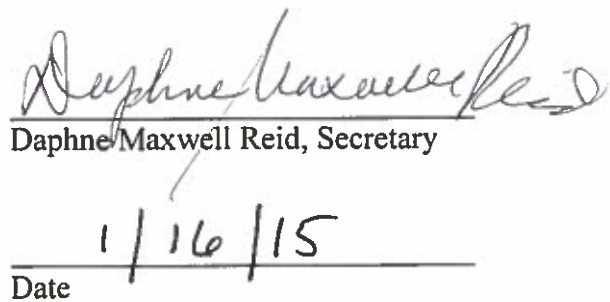 Daphne Maxwell Reid
Daphne Maxwell Reid, Secretary
1/16/15
Date